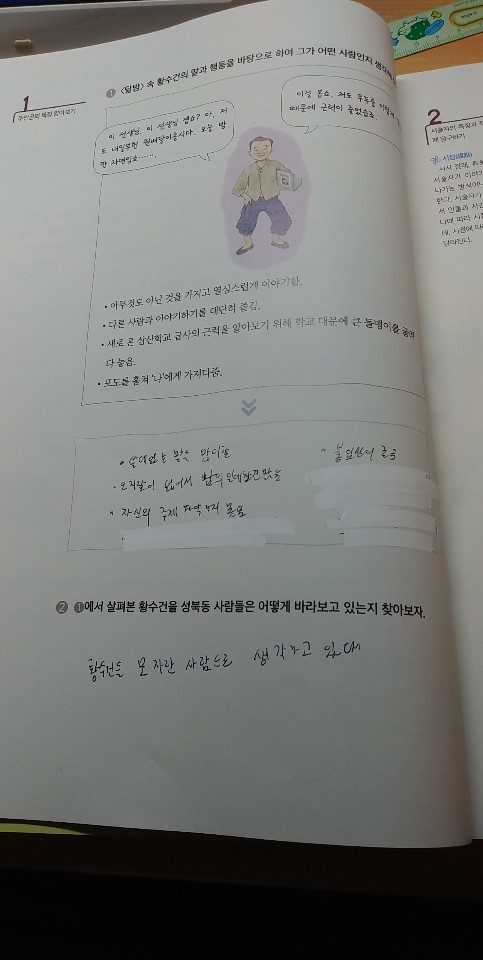 1
주인공의 특징 알아보기
❶ <달밤> 속 황수건의 말과 행동을 바탕으로 하여 그가 어떤 사람인지
이 선생님, 이 선생님 곕쇼? 아, 저
도 내일부턴 원배달이올시다. 오늘 밤
만 자면입쇼……
이걸 봅쇼. 저도 우두를
때문에 근력이 줄었습죠.
• 아무것도 아닌 것을 가지고 열심스럽게 이야기함.
• 다른 사람과 이야기하기를 대단히 즐김.
• 새로 온 삼산학교 급사의 근력을 알아보기 위해 학교 대문에 큰 돌멩이를 굴려
다 놓음.
• 포도를 훔쳐 '나'에게 가져다줌.
• 쓸데없는 말을 많이함
• 눈치
• 자신의 주제 파악 하지 못함
❷ ❶에서 살펴본 황수건을 성북동 사람들은 어떻게 바라보고 있는지 찾아보자.
황수건을 모자란 사람으로 생각하고 있대
2
서술자의 특징과
탐구하기
시점(視點)
서술자가 이야기
나가는 방식이나
한다. 서술자가
서 인물과 사건
나에 따라 시점
데, 시점에 따
달라진다.